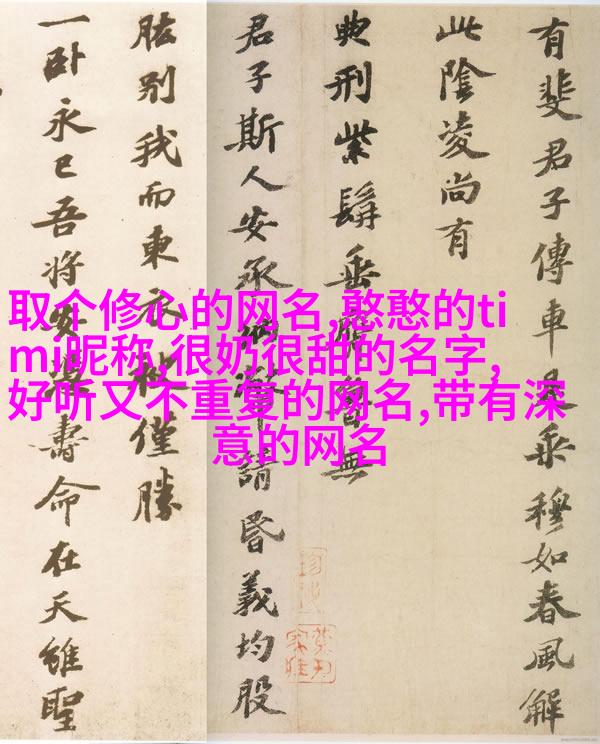 有斐君子傳車是乘穆如春風解
此陰凌尚有
典刑紫髯垂膺魯無
君子斯人安承納幣請昏義均股
肱別我而東衣袂僅勝
一臥永已吾將安憑壽命在天雖聖
取个修心的网名,憨憨的ti
mi昵称,很奶很甜的名字,
好听又不重复的网名,带有深
意的网名